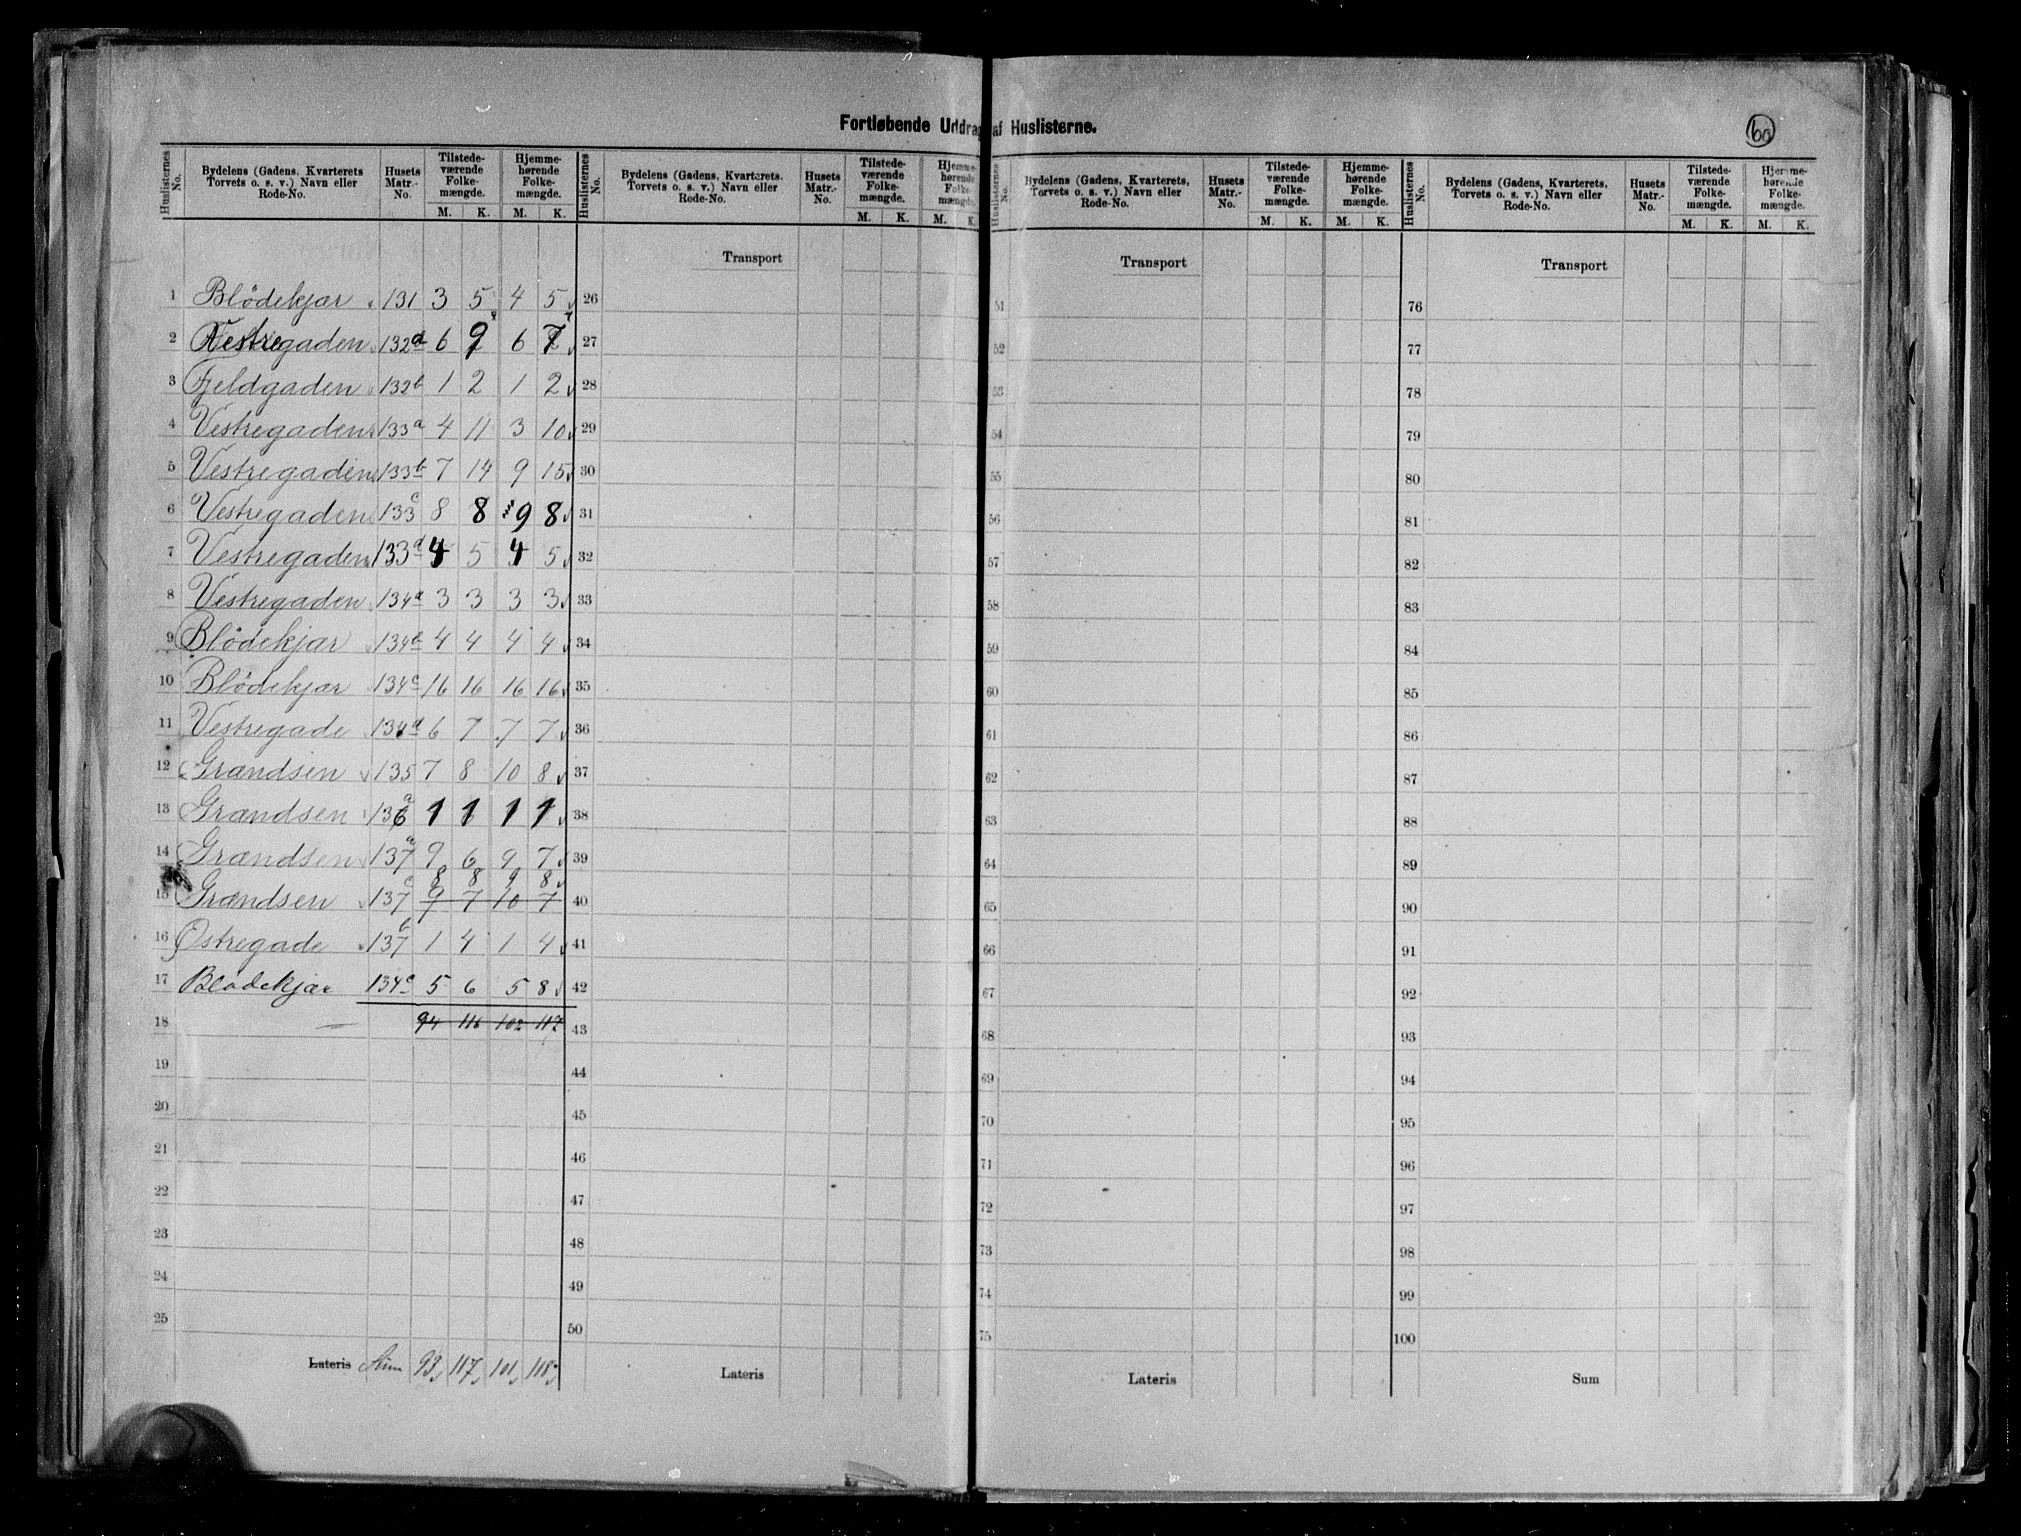 Fortløbende Uddrag af Huslisterne.
60
Huslisternes No. Bydelens (Gadens, Kvarterets, Torvets o. s. v.) Navn eller Rode-No. Husets Matr.-No. Tilstedeværende Folkemængde. M. K. Hjemmehørende Folkemængde. M. K.
Huslisternes No. Bydelens (Gadens, Kvarterets, Torvets o. s. v.) Navn eller Rode-No. Husets Matr.-No. Tilstedeværende Folkemængde. M. K. Hjemmehørende Folkemængde. M. K.
Huslisternes No. Bydelens (Gadens, Kvarterets, Torvets o. s. v.) Navn eller Rode-No. Husets Matr.-No. Tilstedeværende Folkemængde. M. K. Hjemmehørende Folkemængde. M. K.
Huslisternes No. Bydelens (Gadens, Kvarterets, Torvets o. s. v.) Navn eller Rode-No. Husets Matr.-No. Tilstedeværende Folkemængde. M. K. Hjemmehørende Folkemængde. M. K.
Transport Transport Transport
1 Blödekjær 131 3 5 4 5 26 51 76
2 Vestregaden 132a 6 9 6 7 27 52 77
3 Fjeldgaden 132b 1 2 1 2 28 53 78
4 Vestregaden 133a 4 11 3 10 29 54 79
5 Vestregaden 133b 7 14 9 15 30 55 80
6 Vestregaden 133c 8 8 9 8 31 56 81
7 Vestregaden 133d 4 5 4 5 32 57 82
8 Vestregaden 134a 3 3 3 3 33 58 83
9 Blödekjær 134b 4 4 4 4 34 59 84
10 Blödekjær 134c 16 16 16 16 35 60 85
11 Vestregade 134d 6 7 7 7 36 61 86
12 Grændsen 135 7 8 10 8 37 62 87
13 Grændsen 136a 1 1 1 1 38 63 88
14 Grændsen 137a 9 6 9 7 39 64 89
8 8 9 8
15 Grændsen 137c 9 7 10 7 40 65 90
16 Østregade 137b 1 4 1 4 41 66 91
17 Blødekjær 134e 5 6 5 8 42 67 92
18 94 116 102 117 43 68 93
19 44 69 94
20 45 70 95
21 46 71 96
22 47 72 97
23 48 73 98
24 49 74 99
25 50 75 100
Lateris Sum 93 117 101 118 Lateris Lateris Sum